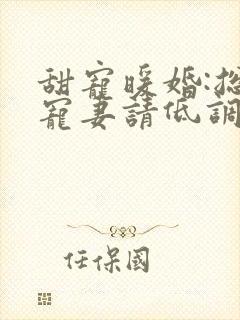 甜寵暖婚:總
寵妻請低調
任保國